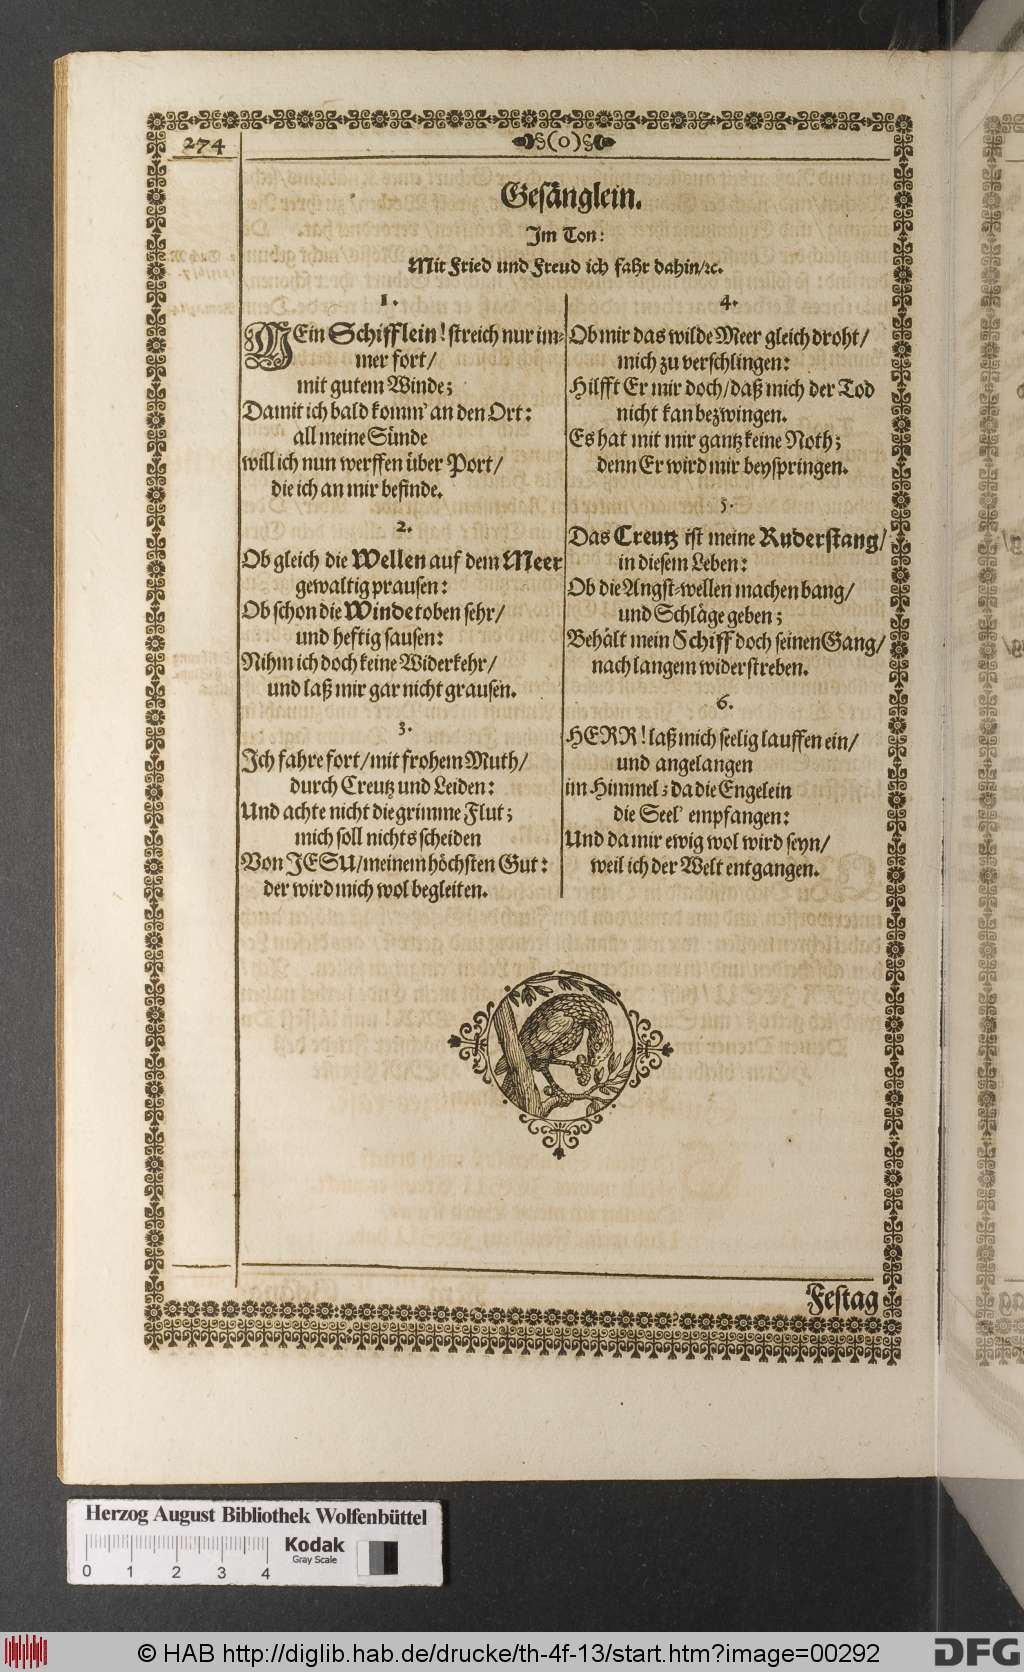 274
§(o)§
Gesänglein.
Im Ton:
Mit Fried und Freud ich fahr dahin/ꝛc.
1.
MEin Schifflein! streich nur im-
mer fort/
mit gutem Winde;
Damit ich bald komm' an den Ort:
all meine Sünde
will ich nun werffen über Port/
die ich an mir befinde.
2.
Ob gleich die Wellen auf dem Meer
gewaltig prausen:
Ob schon die Winde toben sehr/
und heftig sausen:
Nihm ich doch keine Widerkehr/
und laß mir gar nicht grausen.
3.
Ich fahre fort/mit frohem Muth/
durch Creutz und Leiden:
Und achte nicht die grimme Flut;
mich soll nichts scheiden
Von JESU/meinem höchsten Gut:
der wird mich wol begleiten.
4.
Ob mir das wilde Meer gleich droht/
mich zu verschlingen:
Hilfft Er mir doch/daß mich der Tod
nicht kan bezwingen.
Es hat mit mir gantz keine Noth;
denn Er wird mir beyspringen.
5.
Das Creutz ist meine Ruderstang/
in diesem Leben:
Ob die Angst-wellen machen bang/
und Schläge geben;
Behält mein Schiff doch seinen Gang/
nach langem widerstreben.
6.
HERR! laß mich seelig lauffen ein/
und angelangen
im Himmel; da die Engelein
die Seel' empfangen:
Und da mir ewig wol wird seyn/
weil ich der Welt entgangen.
Festag
Herzog August Bibliothek Wolfenbüttel
0 1 2 3 4
Kodak
Gray Scale
© HAB http://diglib.hab.de/drucke/th-4f-13/start.htm?image=00292
DFG